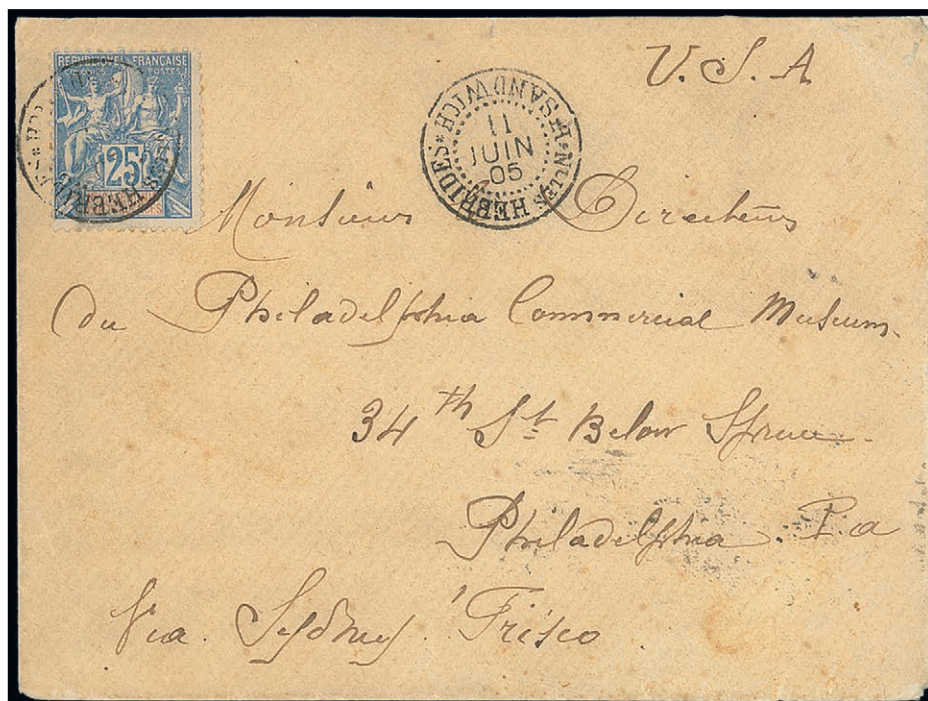 U.S.A
REPUBLIQUE FRANÇAISE
POSTES
25
HEBRIDES
PT SANDWICH * NLLES HEBRIDES *
11
JUIN
05
Monsieur Directeur
du Philadelphia Commercial Museum.
34th St Below Spruce.
Philadelphia. Pa
Via. Sydney. 'Frisco